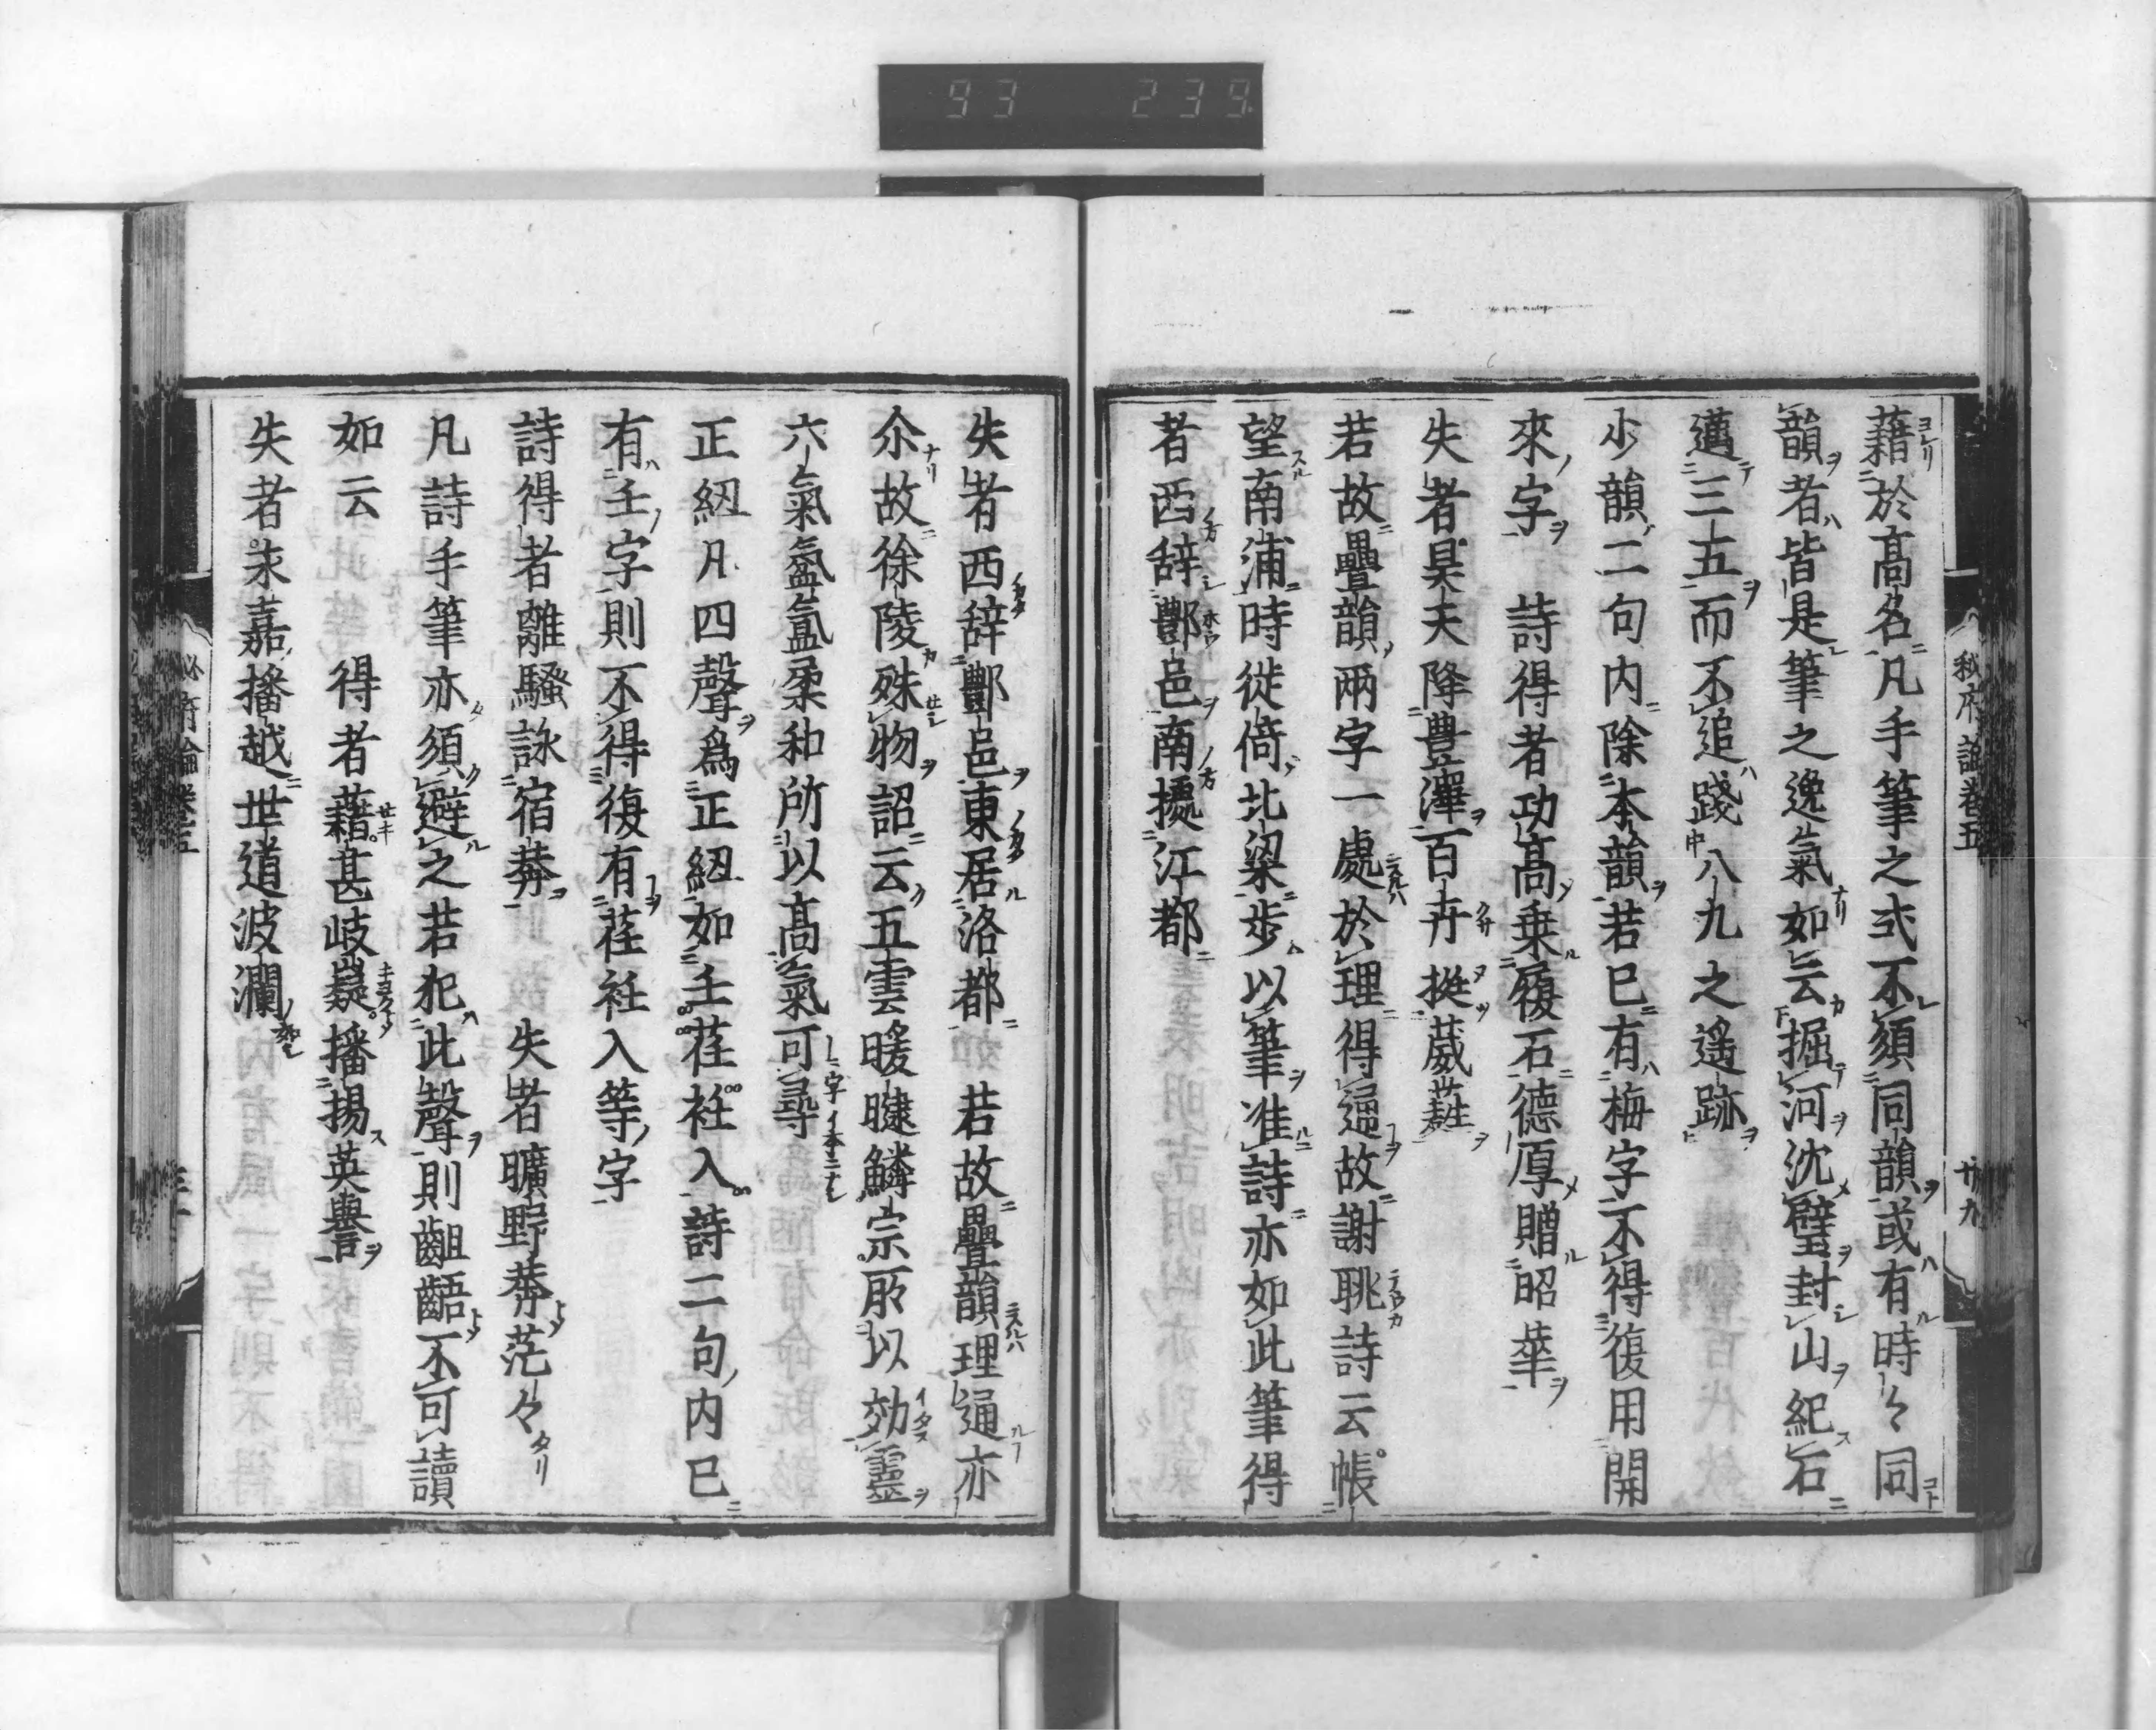 93 239
秘府論卷五
廿九
藉於髙名凡手筆之式不須同韻或有時〻同
韻者皆是筆之逸氣如云掘河沈璧封山紀石
邁三五而不追踐八九之遙跡
小韻二句内除本韻若已有梅字不得復用開
來字　詩得者功髙乗履石德厚贈昭華
失者昊天降豊澤百卉挺葳蕤
若故疊韻兩字一處於理得通故謝朓詩云帳
望南浦時徙倚北梁步以筆准詩亦如此筆得
者西辞酆邑南據江都
失者西辞酆邑東居洛都　若故疊韻理通亦
尒故徐陵殊物詔云五雲暖曃鱗宗所以効靈
六氣氤氲柔和所以髙氣可尋
正紐凡四聲爲正紐如壬荏袵入詩二句内已
有壬字則不得復有荏袵入等字
詩得者離騷詠宿莽　失者曠野莽茫々
凡詩手筆亦須避之若犯此聲則齟齬不可讀
如云　得者藉甚岐嶷播揚英譽
失者永嘉播越世道波瀾
秘府論卷五